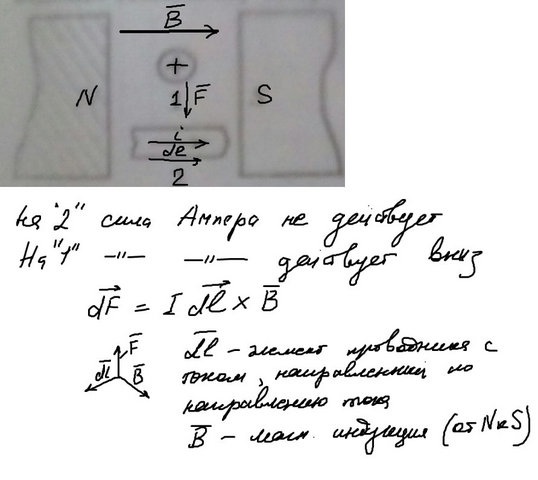 B̅
N + S
1 F̅
i
d̅l̅
2
На "2" сила Ампера не действует
На "1" —"— —"— действует вниз
d̅F̅ = I d̅l̅ × B̅
F̅
d̅l̅ B̅
d̅l̅ - элемент проводника с
током, направленный по
направлению тока
B̅ - магн. индукция (от N к S)